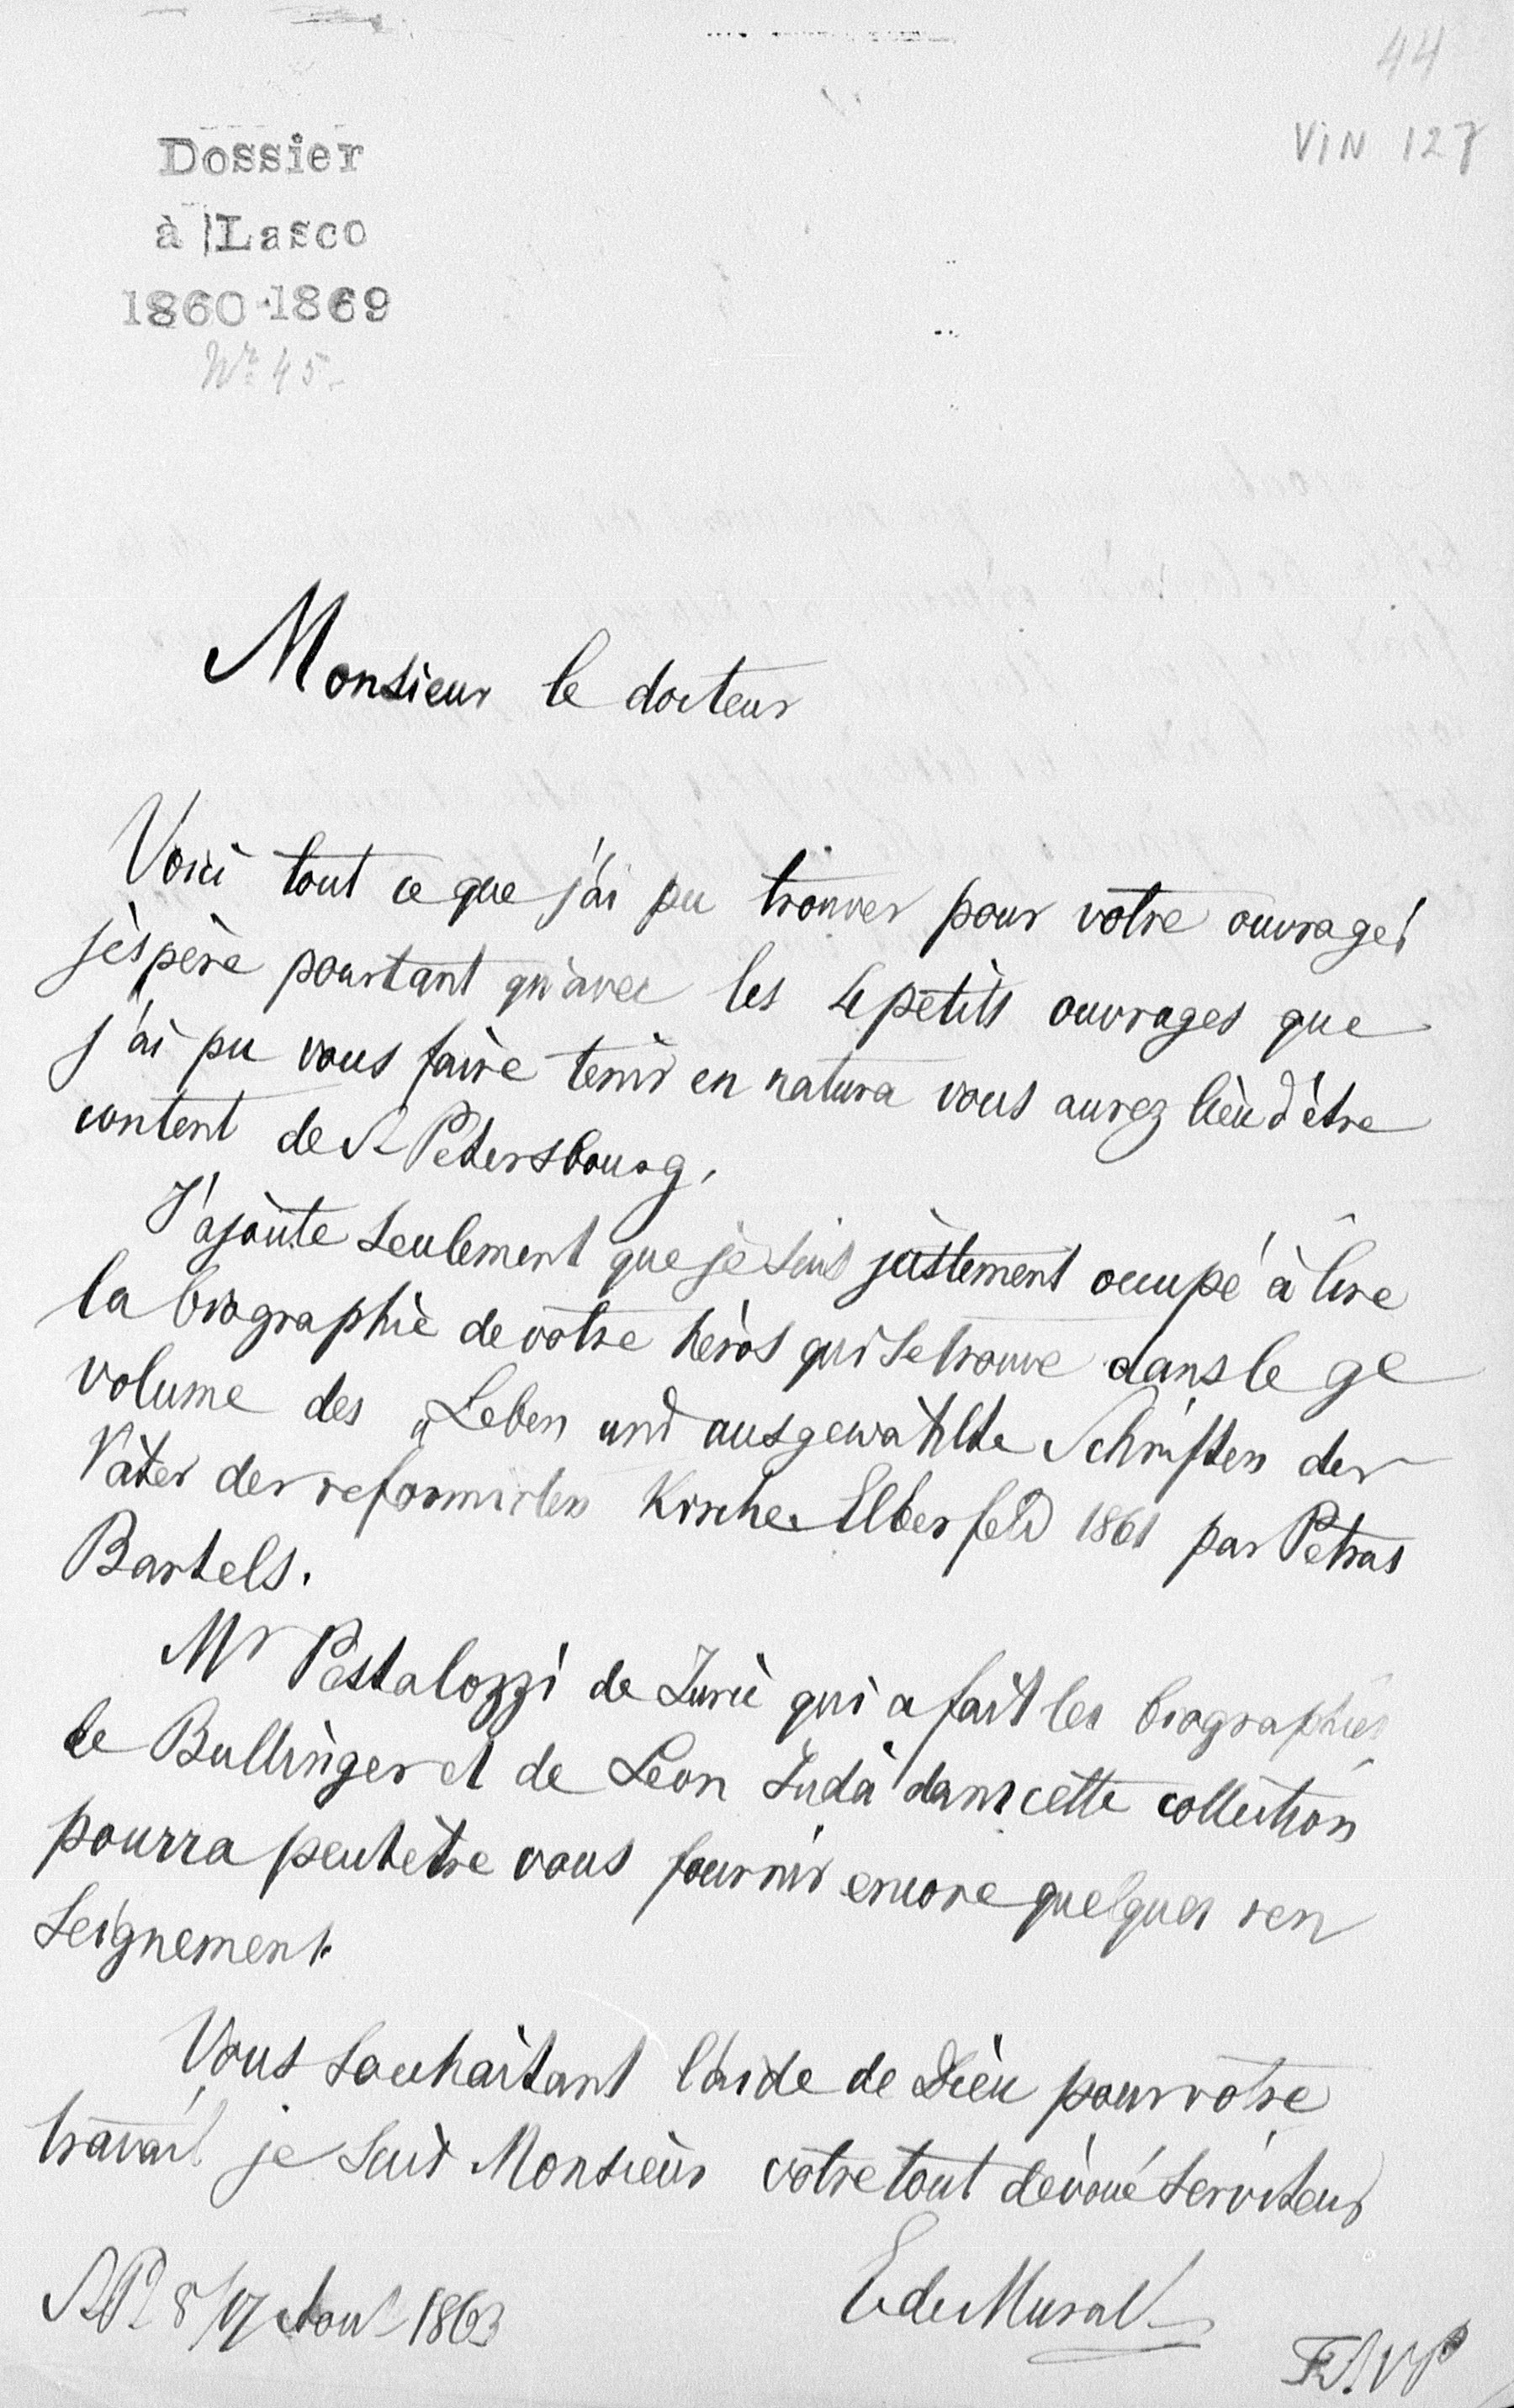 44
VIN 127
Dossier
à Lasco
1860-1869
Nr 45.
Monsieur le docteur
Voici tout ce que j'ai pu trouver pour votre ouvrage,
j'espère pourtant qu'avec les 4 petits ouvrages que
j'ai pu vous faire tenir en natura vous aurez lieu d'être
content de St Petersbourg.
J'ajoute seulement que je suis justement occupé à lire
la biographie de votre héros qui se trouve dans le 9e
volume des „Leben und ausgewählte Schriften der
Väter der reformirten Kirche. Elberfeld 1861 par Petrus
Bartels.
Mr Pestalozzi de Zuric qui a fait les biographies
de Bullinger et de Leon Juda dans cette collection
pourra peutêtre vous fournir encore quelques ren
seignement.
Vous souhaitant l'aide de Dieu pour votre
travail je suis Monsieur votre tout dévoué serviteur
St P. 5/17 Aout 1863
E de Muralt